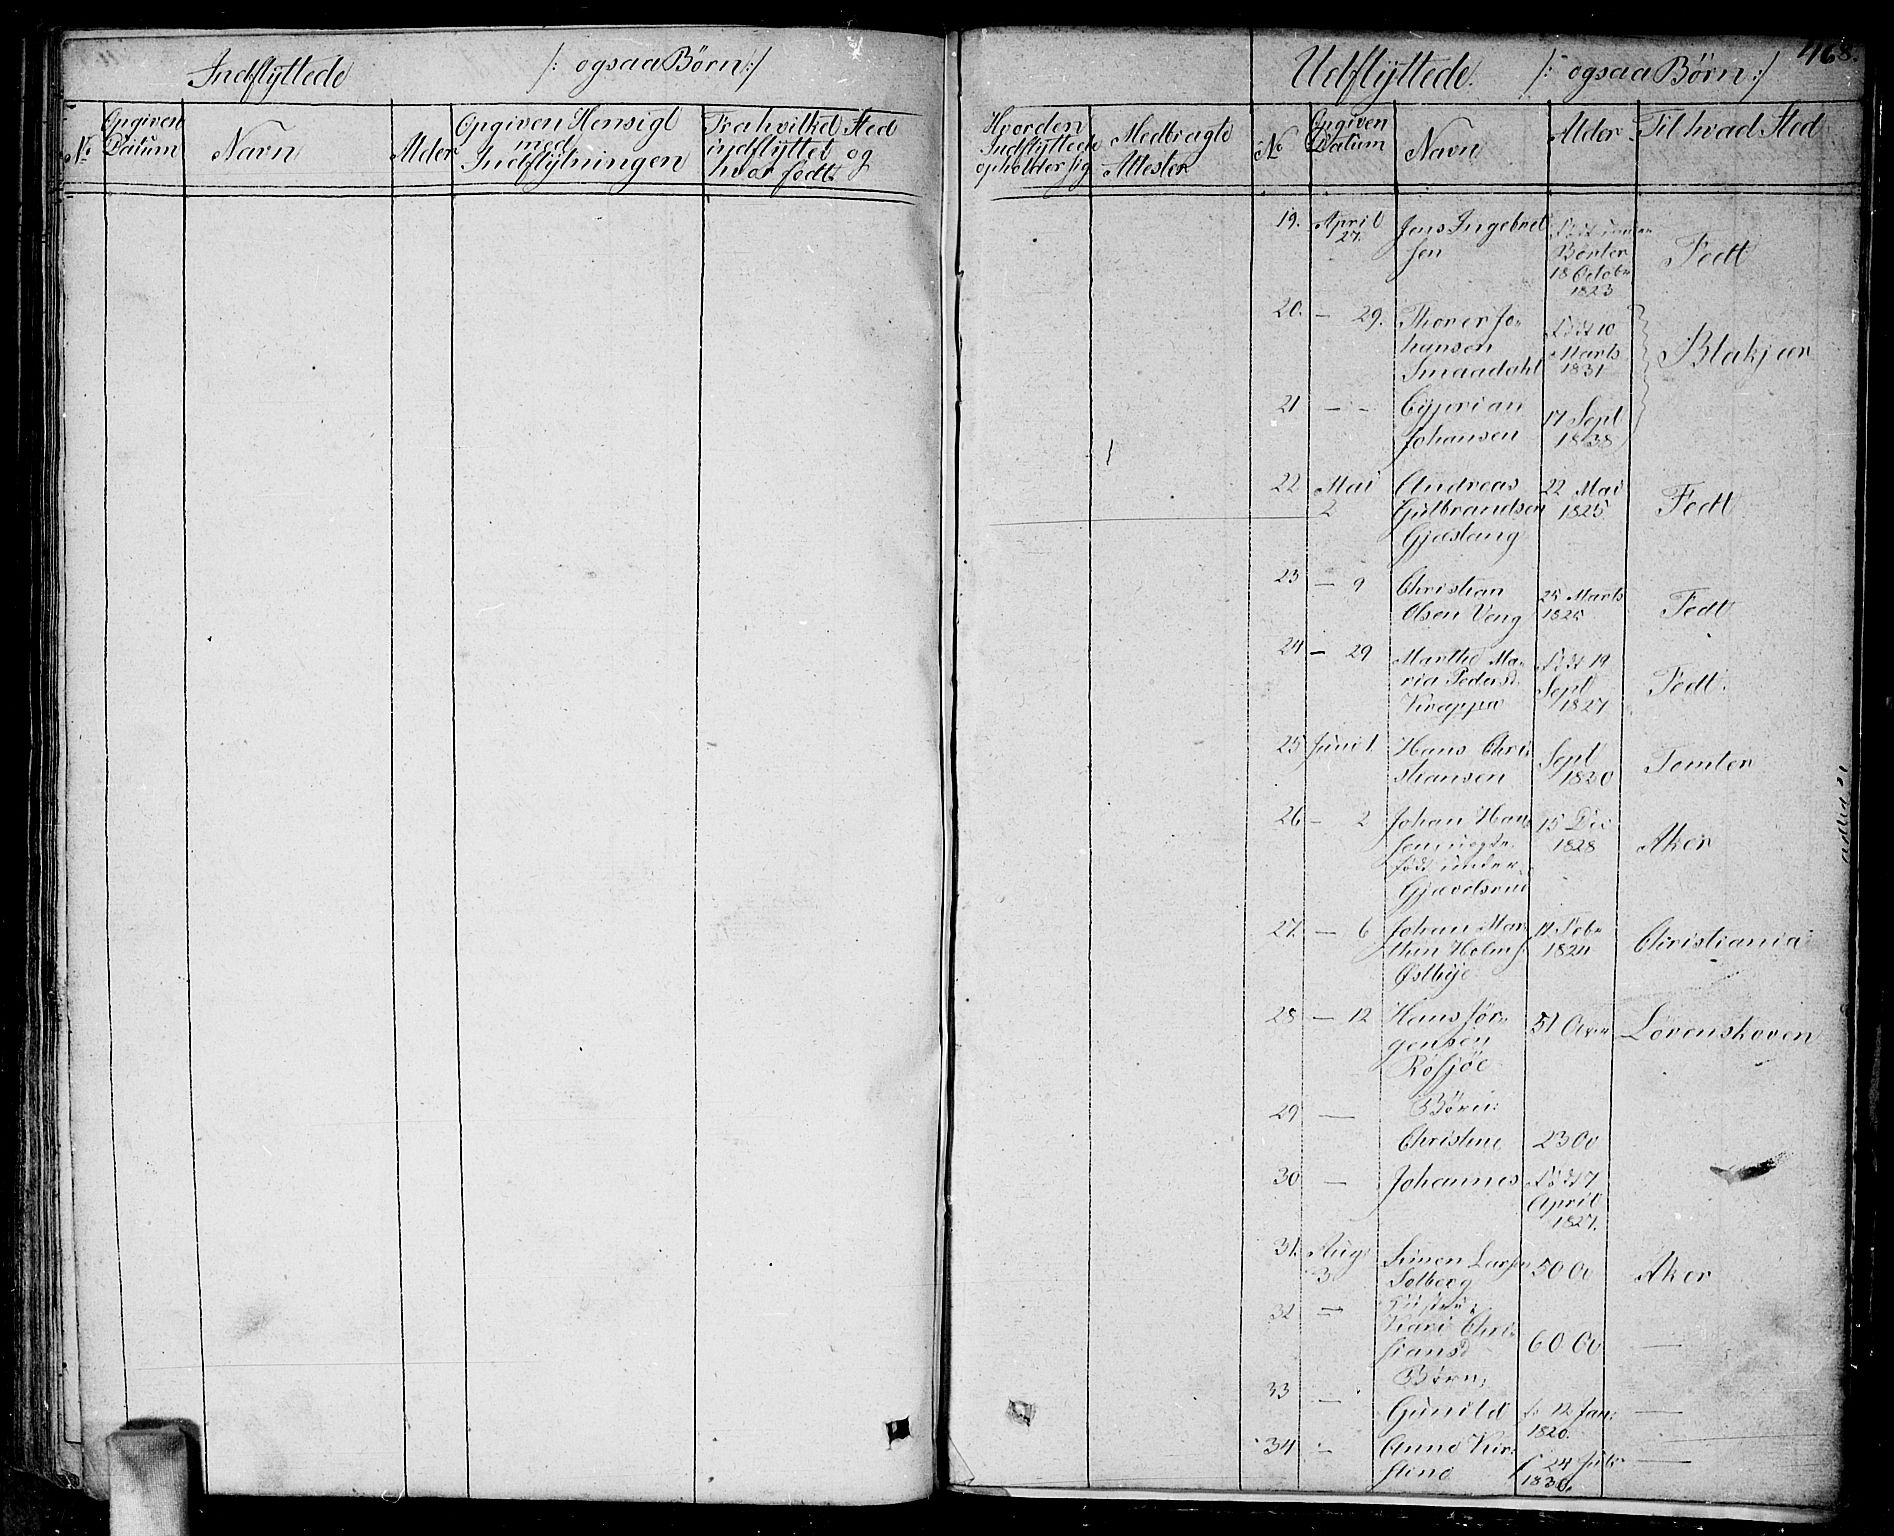 Indflyttede /: ogsaa Børn :/
No
Opgiven Datum
Navn
Alder
Opgiven Hensigt med Indflytningen
Fra hvilket Sted indflyttet og hvor født
468.
Udflyttede. /: ogsaa Børn :/
Hvor den Indflyttede opholder sig
Medbragte Attester
No
Opgiven Datum
Navn
Alder
Til hvad Sted
19. April 27. Jens Ingebret
sen
Født under
Børter
18 Octobr
1823
Fedt
20. — 29. Thorer Jo-
hansen
Smaadahl
Født 10
Marts
1831
Blakjær
21 — - Cyprian
Johansen
17 Sept
1838
22 Mai 2 Andreas
Gulbrandsen
Gjæstang
22 Mai
1825
Fedt
23 — 9 Christian
Olsen Veng
25 Marts
1825
Fedt
24 — 29 Marthe Ma-
ria Pedersd.
Krappe
Født 19
Sept
1827
Fedt.
25 Juni 1. Hans Chri
stiansen
Sept
1820
Tomter
26 — 2 Johan Han
sen
født under
15 Dec
1828
Aker
27. — 6 Johan Mar
thin Holm
Østbye
1824
Christiania
28 — 12 Hans Jør-
gensen
Røsjøe
51 Aar
Lørenskoven
29 — Børn:
Christine
23 Aa
30 — Johannes
Født 7
April
1827.
31. Aug 3 Simen Larsen
Solberg
50 Aa
Aker
32 — Hustru,
Kari Chri-
stiansd
60 Aa
—
33 — Børn;
Gunild
f. 12 Jan:
1820.
—
34 — Anne Kir-
stene
f 24 Jul
1830.
—